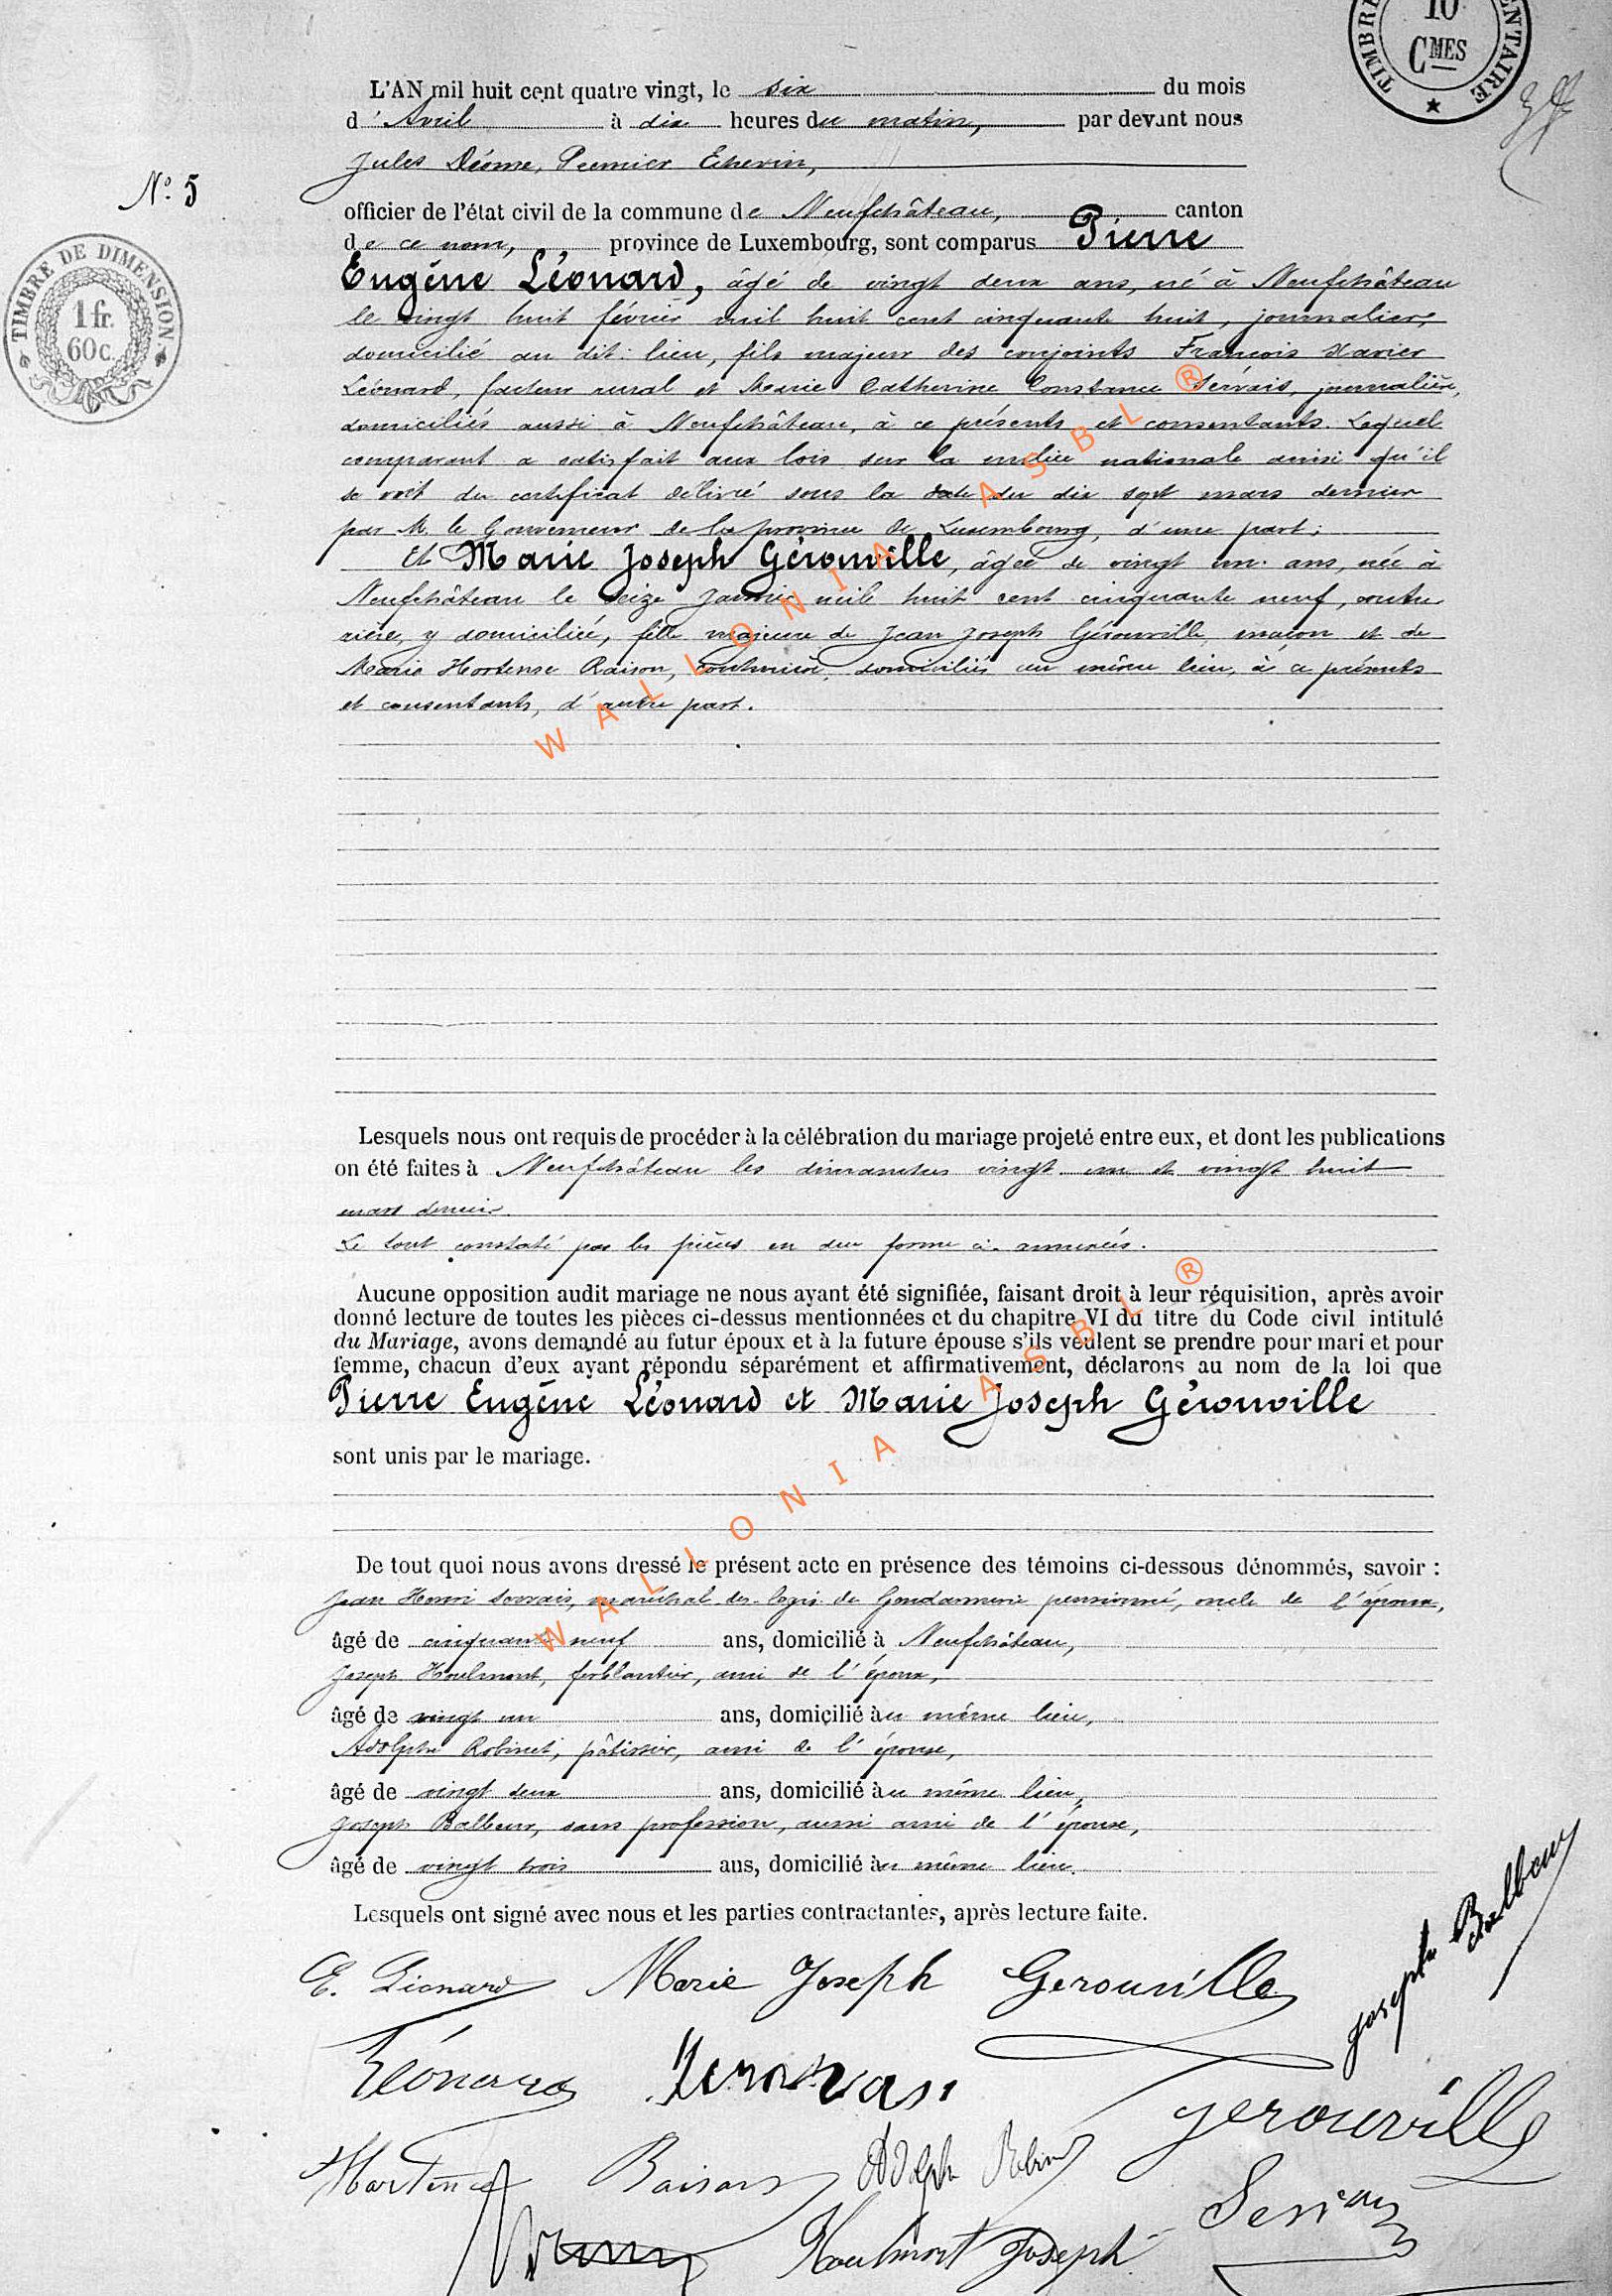 TIMBRE 10 CMES ENTAIRE
L'AN mil huit cent quatre vingt, le six du mois
d'Avril à dix heures du matin, par devant nous
Jules Déome, Premier Echevin,
N° 5
officier de l'état civil de la commune de Neufchâteau, canton
de ce nom, province de Luxembourg, sont comparus Pierre
TIMBRE DE DIMENSION
1 fr.
60 c.
Eugéne Léonard, âgé de vingt deux ans, né à Neufchâteau
le vingt huit février mil huit cent cinquante huit, journalier,
domicilié au dit lieu, fils majeur des conjoints François Xavier
Léonard, facteur rural et Marie Catherine Constance Servais, journalière,
domiciliés aussi à Neufchâteau, à ce présents et consentants. Lequel
comparant a satisfait aux lois sur la milice nationale ainsi qu'il
se voit du certificat délivré sous la date du dix sept mars dernier
par M. le Gouverneur de la province de Luxembourg, d'une part;
Et Marie Joseph Gérouville, âgée de vingt un ans, née à
Neufchâteau le seize Janvier mil huit cent cinquante neuf, coutu
rière, y domiciliée, fille majeure de Jean Joseph Gérouville, maçon et de
Marie Hortense Raison, couturière, domiciliés au même lieu, à ce présents
et consentants, d'autre part.
WALLONIA ASBL ®
Lesquels nous ont requis de procéder à la célébration du mariage projeté entre eux, et dont les publications
on été faites à Neufchâteau les dimanches vingt un et vingt huit
mars dernier.
Le tout constaté par les pièces en due forme ci-annexées.
Aucune opposition audit mariage ne nous ayant été signifiée, faisant droit à leur réquisition, après avoir
donné lecture de toutes les pièces ci-dessus mentionnées et du chapitre VI du titre du Code civil intitulé
du Mariage, avons demandé au futur époux et à la future épouse s'ils veulent se prendre pour mari et pour
femme, chacun d'eux ayant répondu séparément et affirmativement, déclarons au nom de la loi que
Pierre Eugéne Léonard et Marie Joseph Gérouville
sont unis par le mariage.
WALLONIA ASBL ®
De tout quoi nous avons dressé le présent acte en présence des témoins ci-dessous dénommés, savoir :
Jean Henri Servais, maréchal des logis de Gendarmerie pensionné, oncle de l'époux,
âgé de cinquante neuf ans, domicilié à Neufchâteau,
Joseph Houlmont, ferblantier, ami de l'époux,
âgé de vingt un ans, domicilié au même lieu,
Adolphe Robinet, pâtissier, ami de l'épouse,
âgé de vingt deux ans, domicilié au même lieu,
Joseph Balbeur, sans profession, aussi ami de l'épouse,
âgé de vingt trois ans, domicilié au même lieu.
Lesquels ont signé avec nous et les parties contractantes, après lecture faite.
E. Léonard Marie Joseph Gerouville
Joseph Balbeur
Léonard
gerouville
Hortence Raison Adolphe
Servais
Houlmont Joseph